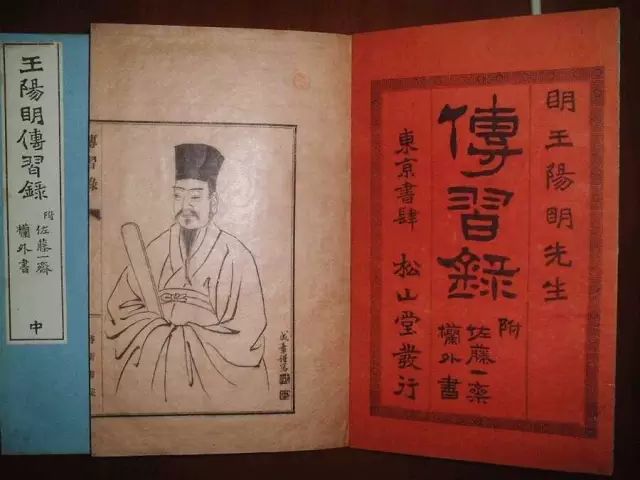 王陽明傳習錄
附 佐藤一齋
欄外書
中
傳習錄
明王陽明先生
傳習錄
附 佐藤一齋
欄外書
東京書肆 松山堂發行